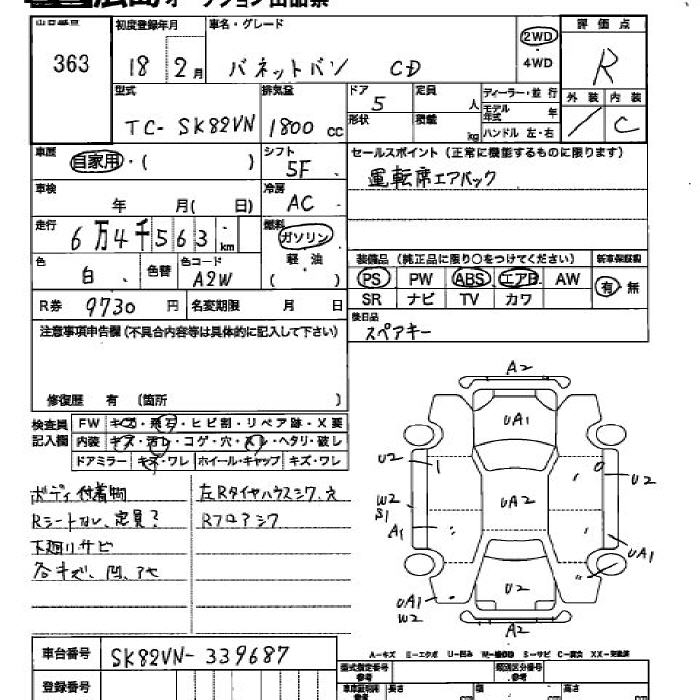 広島 オークション出品票
出品番号 363
初度登録年月 18 2月
車名・グレード バネットバン CD
2WD ・ 4WD
評価点 R
外装 / 内装 C
型式 TC-SK82VN
排気量 1800 cc
ドア 5 形状
定員 人 積載 kg
ディーラー・並行
モデル年式 年
ハンドル 左・右
車歴 自家用・( )
シフト 5F
セールスポイント (正常に機能するものに限ります)
運転席エアバック
車検 年 月( 日)
冷房 AC
走行 6万4千563 km
燃料 ガソリン 軽油 ( )
色 白 色替 色コード A2W
装備品 (純正品に限り○をつけてください) 新車保証書
PS PW ABS エアB AW 有・無
SR ナビ TV カワ
R券 9730 円 名変期限 月 日
後日品
スペアキー
注意事項申告欄 (不具合内容等は具体的に記入して下さい)
修復歴 有 (箇所 )
検査員記入欄
FW キズ・飛石・ヒビ割・リペア跡・X要
内装 キズ・汚レ・コゲ・穴・スレ・ヘタリ・破レ
ドアミラー キズ・ワレ ホイール・キャップ キズ・ワレ
ボディ付着物
Rシートナシ、定員?
下廻りサビ
各キズ、凹、アセ
左Rタイヤハウスシワ、穴
Rフロアシワ
A2
UA1
U2
U2
W2
S1
UA2
A1
UA1
UA1
W2
U2
A2
A-キズ E-エクボ U-凹み W-補修跡 S-サビ C-腐食 XX-交換済
車台番号 SK82VN-339687
登録番号
型式指定番号 参考
類別区分番号 参考
長さ cm 幅 cm 高さ cm